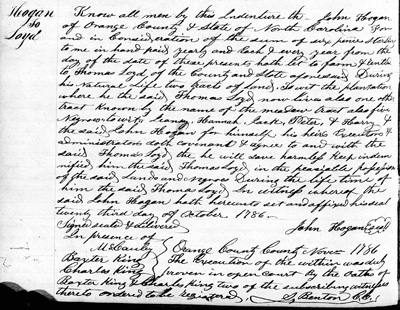 Hogan
to
Loyd
Know all men by this Indenture that John Hogan
of Orange County & State of North Carolina For
and in Consideration of the sum of six pence Sterling
to me in hand paid yearly and Each & every year from the
day of the date of these presents hath let to farm & 
to Thomas Loyd of the County and State aforesaid During
his Natural Life two tracts of Land, To wit the plantation
where he the said Thomas Loyd now Lives also one other
tract Known by the name of the meadow tract also five
Negroes to wit, Hannah Jack, Peter, & Harry &
the said John Hogan for himself his heirs Executors &
administrators doth covenant & agree to and with the
said Thomas Loyd that he will save harmless Keep indem
nified him the said Thomas Loyd in the peaceable possession
of the said Lands and negroes During the life time of
him the said Thomas Loyd In witness whereof the
said John Hogan hath hereunto set and affixed his seal
twenty third day of October 1786 -
Signed sealed & delivered John Hogan Seal
In presence of
McCauley Orange County County Novr 1786
Baxter King The Execution of the within was duly
Charles King proven in open Court By the Oaths of
Baxter King & Charles King two of the subscribing witnesses
thereto ordered to be registered, J. Benton C.C.